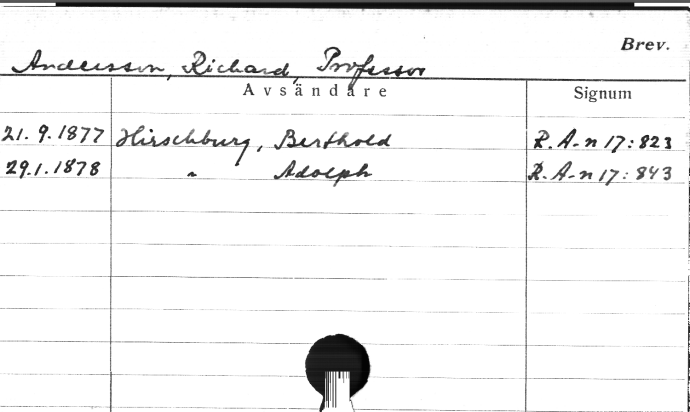 Brev.
Andersson, Richard, Professor
Avsändare Signum
21. 9. 1877 Hirschburg, Berthold R. A-n 17:823
29.1.1878 " Adolph R. A-n 17:843